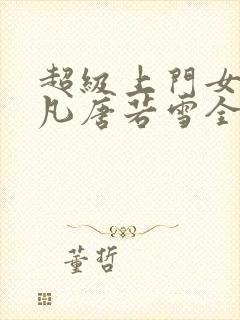 超級上門女
凡唐若雪全
董哲